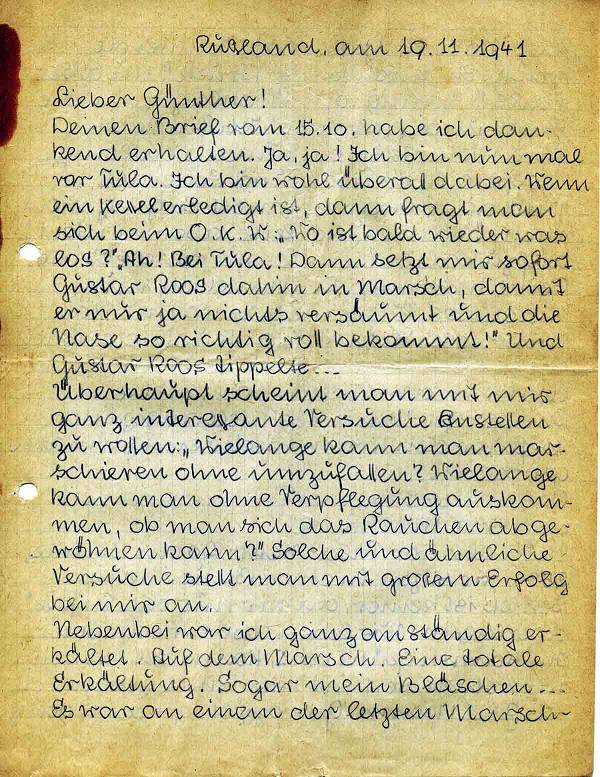 Rußland, am 19.11.1941
Lieber Günther!
Deinen Brief vom 15.10. habe ich dan-
kend erhalten. Ja, ja! Ich bin nun mal
vor Tula. Ich bin wohl überall dabei. Wenn
ein Kessel erledigt ist, dann fragt man
sich beim O.K.W: „Wo ist bald wieder was
los?" „Ah! Bei Tula! Dann setzt mir sofort
Gustav Roos dahin in Marsch, damit
er mir ja nichts versäumt und die
Nase so richtig voll bekommt!" Und
Gustav Roos tippelte...
Überhaupt scheint man mit mir
ganz interessante Versuche anstellen
zu wollen: „Wielange kann man mar-
schieren ohne umzufallen? Wielange
kann man ohne Verpflegung auskom-
men, ob man sich das Rauchen abge-
wöhnen kann?" Solche und ähnliche
Versuche stellt man mit großem Erfolg
bei mir an.
Nebenbei war ich ganz anständig er-
kältet. Auf dem Marsch. Eine totale
Erkältung. Sogar mein Bläschen...
Es war an einem der letzten Marsch-